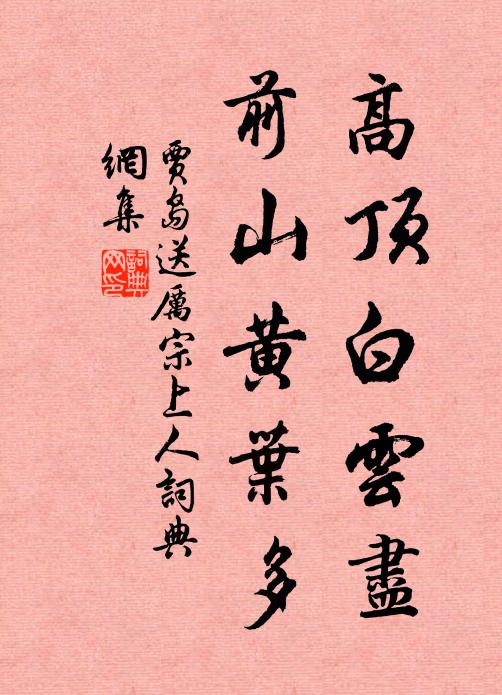 高頂白雲盡
前山黃葉多
賈島送厲宗上人詞典
網集
詞典
网印